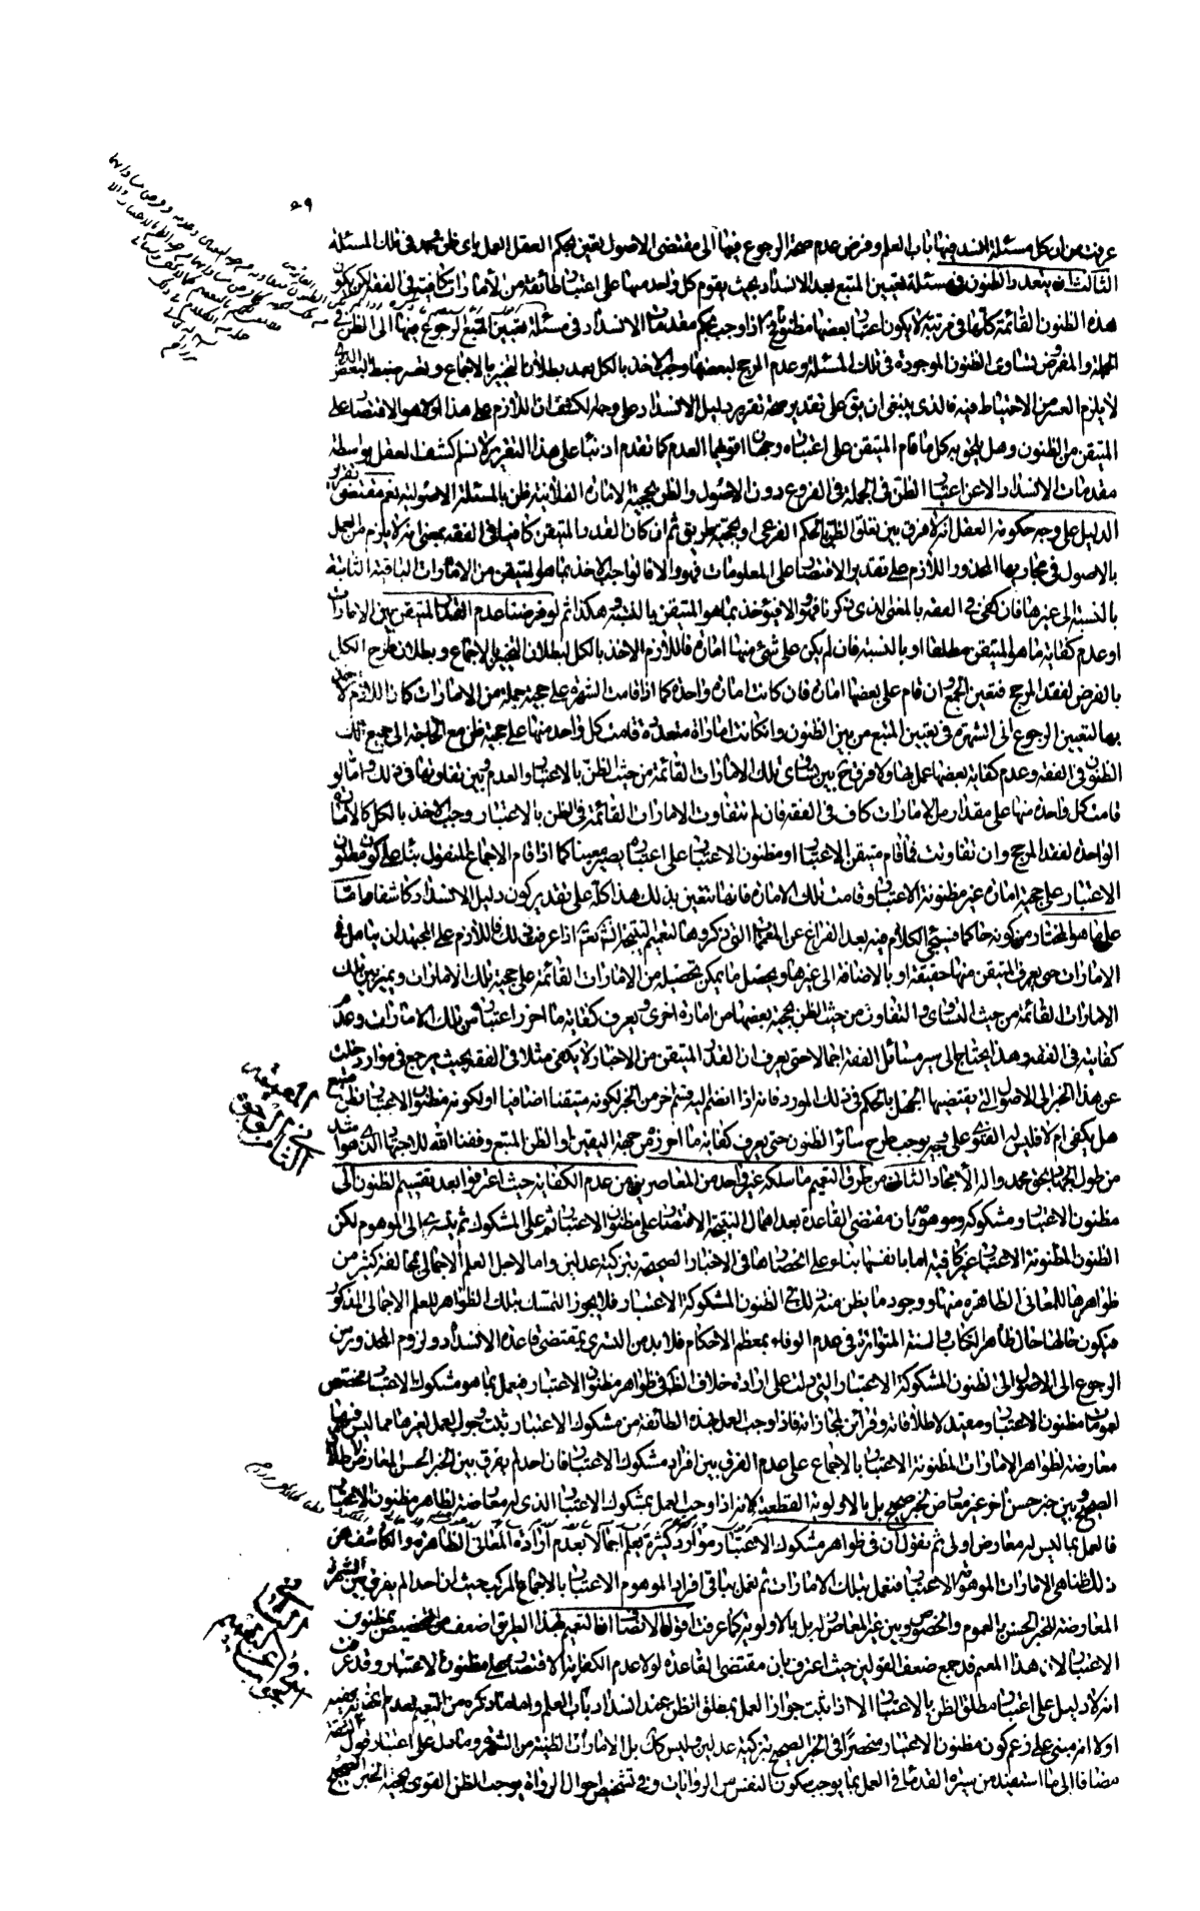 عرفت من ان كل مسئلة انسد فيها باب العلم وفرض عدم صحة الرجوع فيها الى مقتضى الاصول تعين بحكم العقل العمل باى ظن وجد فى تلك المسئلة
الثالث ان يتعدد الظنون فى مسئلة تعيين المتبع بعد الانسداد بحيث يقوم كل واحد منها على اعتبار طائفة من الأمارات كافية فى الفقه لكن يكون
هذه الظنون القائمة كلها فى مرتبة لا يكون اعتبار بعضها مظنونا فح اذا وجب بحكم مقدمات الانسداد فى مسئلة تعيين المتبع الرجوع فيها الى الظن فى
الجملة والمفروض تساوى الظنون الموجودة فى تلك المسئلة وعدم المرجح لبعضها وجب الاخذ بالكل بعد بطلان التخيير بالاجماع وتعسر ضبط البعض الذى
لا يلزم العسر من الاحتياط فيه فالذى ينبغى ان يق على تقدير صحة تقرير دليل الانسداد على وجه الكشف ان اللازم على هذا اولا هو الاقتصار على
المتيقن من الظنون وهل يلحق به كل ما قام المتيقن على اعتباره وجهان اقويهما العدم كما تقدم اذ بناء على هذا التقرير لا نسلم كشف العقل بواسطة
مقدمات الانسداد الا عن اعتبار الظن فى الجملة فى الفروع دون الاصول والظن بحجية الامارة الفلانية ظن بالمسئلة الاصولية نعم مقتضى تقرير
الدليل على وجه حكومة العقل انه لا فرق بين تعلق الظن بالحكم الفرعى او بحجية طريق ثم ان كان القدر المتيقن كافيا فى الفقه بمعنى انه لا يلزم من العمل
بالاصول فى مجاريها المحذور اللازم على تقدير الاقتصار على المعلومات فهو والا فالواجب الاخذ بما هو المتيقن من الامارات الباقية الثابتة
بالنسبة الى غيرها فان كفى فى الفقه بالمعنى الذى ذكرنا فهو والا فيؤخذ بما هو المتيقن بالنسبة وهكذا ثم لو فرضنا عدم القدر المتيقن بين الامارات
او عدم كفاية ما هو المتيقن مطلقا او بالنسبة فان لم يكن على شئ منها امارة فاللازم الاخذ بالكل لبطلان التخيير بالاجماع وبطلان طرح الكل
بالفرض لفقد المرجح فتعين الجمع وان قام على بعضها امارة فان كانت امارة واحدة كما اذا قامت الشهرة على حجية جملة من الامارات كان اللازم الاخذ
بها لتعيين الرجوع الى الشهرة فى تعيين المتبع من بين الظنون وان كانت امارات متعددة قامت كل واحد منها على حجية ظن مع الحاجة الى جميع تلك
الظنون فى الفقه وعدم كفاية بعضها عمل بها ولا فرق ح بين تساوى تلك الامارات القائمة من حيث الظن بالاعتبار والعدم وبين تفاوتها فى ذلك واما لو
قامت كل واحدة منها على مقدار من الامارات كاف فى الفقه فان لم تتفاوت الامارات القائمة فى الظن بالاعتبار وجب الاخذ بالكل كالامارة
الواحدة لفقد المرجح وان تفاوتت فما قام متيقن الاعتبار او مظنون الاعتبار على اعتباره يصير معينا كما اذا قام الاجماع المنقول بناء على كونه مظنون
الاعتبار على حجية امارة غير مظنونة الاعتبار وقامت تلك الامارة فانها تتعين بذلك هذا كله على تقدير كون دليل الانسداد كاشفا واما بناء
على ما هو المختار من كونه حاكما فسيجئ الكلام فيه بعد الفراغ عن المقدمات التى ذكروها لتعميم النتيجة انش تعم اذا عرفت ذلك فاللازم على المجتهد ان يتامل فى
الامارات حتى يعرف المتيقن منها حقيقة او بالاضافة الى غيرها ويحصل ما يمكن تحصيله من الامارات القائمة على حجية تلك الامارات ويميز بين تلك
الامارات القائمة من حيث التساوى والتفاوت من حيث الظن بحجية بعضها من امارة اخرى ويعرف كفاية ما احرز اعتباره من تلك الامارات وعدم
كفايته فى الفقه وهذا يحتاج الى سبر مسائل الفقه اجمالا حتى يعرف ان القدر المتيقن من الاخبار لا يكفى مثلا فى الفقه بحيث يرجع فى موارد خلت
عن هذا الخبر الى الاصول التى يقتضيها الجهل بالحكم فى ذلك المورد فانه اذا انضم اليه قسم اخر من الخبر لكونه متيقنا اضافيا او لكونه مظنون الاعتبار بظن متبع
هل يكفى ام لا فليس له الفتوى على وجه يوجب طرح سائر الظنون حتى يعرف كفاية ما احرزه من جهة اليقين او الظن المتبع وفقنا الله للاجتهاد الذى هو اشد
من طول الجهاد بحق محمد وآله الأمجاد الثانى من طرق التعميم ما سلكه غير واحد من المعاصرين من عدم الكفاية حيث اعترفوا بعد تقسيم الظنون الى
مظنون الاعتبار ومشكوكه وموهومه بان مقتضى القاعدة بعد اهمال النتيجة الاقتصار على مظنون الاعتبار ثم على المشكوك ثم يتسرى الى الموهوم لكن
الظنون المظنونة الاعتبار غير كافية اما بانفسها بناء على انحصارها فى الاخبار الصحيحة بتزكية عدلين واما لاجل العلم الاجمالى بمخالفة كثير من
ظواهرها للمعانى الظاهرة منها ووجود ما يظن منه ذلك فى الظنون المشكوكة الاعتبار فلا يجوز التمسك بتلك الظواهر للعلم الاجمالى المذكور
فيكون حالها حال ظاهر الكتاب والسنة المتواترة فى عدم الوفاء بمعظم الاحكام فلا بد من التسرى بمقتضى قاعدة الانسداد ولزوم المحذور من
الرجوع الى الاصول الى الظنون المشكوكة الاعتبار التى دلت على ارادة خلاف الظاهر فى ظواهر مظنون الاعتبار فيعمل بما هو مشكوك الاعتبار مخصص
لعمومات مظنون الاعتبار ومقيد لاطلاقاته وقرائن لمجازاته فاذا وجب العمل بهذه الطائفة من مشكوك الاعتبار ثبت وجوب العمل لغيرها مما ليس فيها
معارضة لظواهر الامارات المظنونة الاعتبار بالاجماع على عدم الفرق بين افراد مشكوك الاعتبار فان احدا لم يفرق بين الخبر الحسن المعارض لاطلاق
الصحيح وبين خبر حسن اخر غير معارض لخبر صحيح بل بالاولوية القطعية لانه اذا وجب العمل بمشكوك الاعتبار الذى له معارضة لظاهر مظنون الاعتبار
فالعمل بما ليس له معارض اولى ثم نقول ان فى ظواهر مشكوك الاعتبار موارد كثيرة يعلم اجمالا بعدم ارادة المعانى الظاهرة والكاشف عن
ذلك ظنا هى الامارات الموهومة الاعتبار فنعمل بتلك الامارات ثم نعمل بباقى افراد الموهوم الاعتبار بالاجماع المركب حيث ان احدا لم يفرق بين الشهرة
المعارضة للخبر الحسن بالعموم والخصوص وبين غير المعارض له بل بالاولوية كما عرفت اقول الانصاف ان التعميم بهذا الطريق اضعف من التخصيص بمظنون
الاعتبار لان هذا المعمم قد جمع ضعف القولين حيث اعترف بان مقتضى القاعدة لولا عدم الكفاية الاقتصار على مظنون الاعتبار وقد عرفت
انه لا دليل على اعتبار مطلق الظن بالاعتبار الا اذا ثبت جواز العمل بمطلق الظن عند انسداد باب العلم واما ما ذكره من التعميم بعدم الكفاية ففيه
اولا انه مبنى على زعم كون مظنون الاعتبار منحصرا فى الخبر الصحيح بتزكية عدلين وليس كك بل الامارات الظنية من الشهرة وما دل على اعتبار قول الثقة
مضافا الى ما استفيد من سيرة القدماء فى العمل بما يوجب سكون النفس من الروايات وفى تشخيص احوال الرواة يوجب الظن القوى بحجية الخبر الصحيح